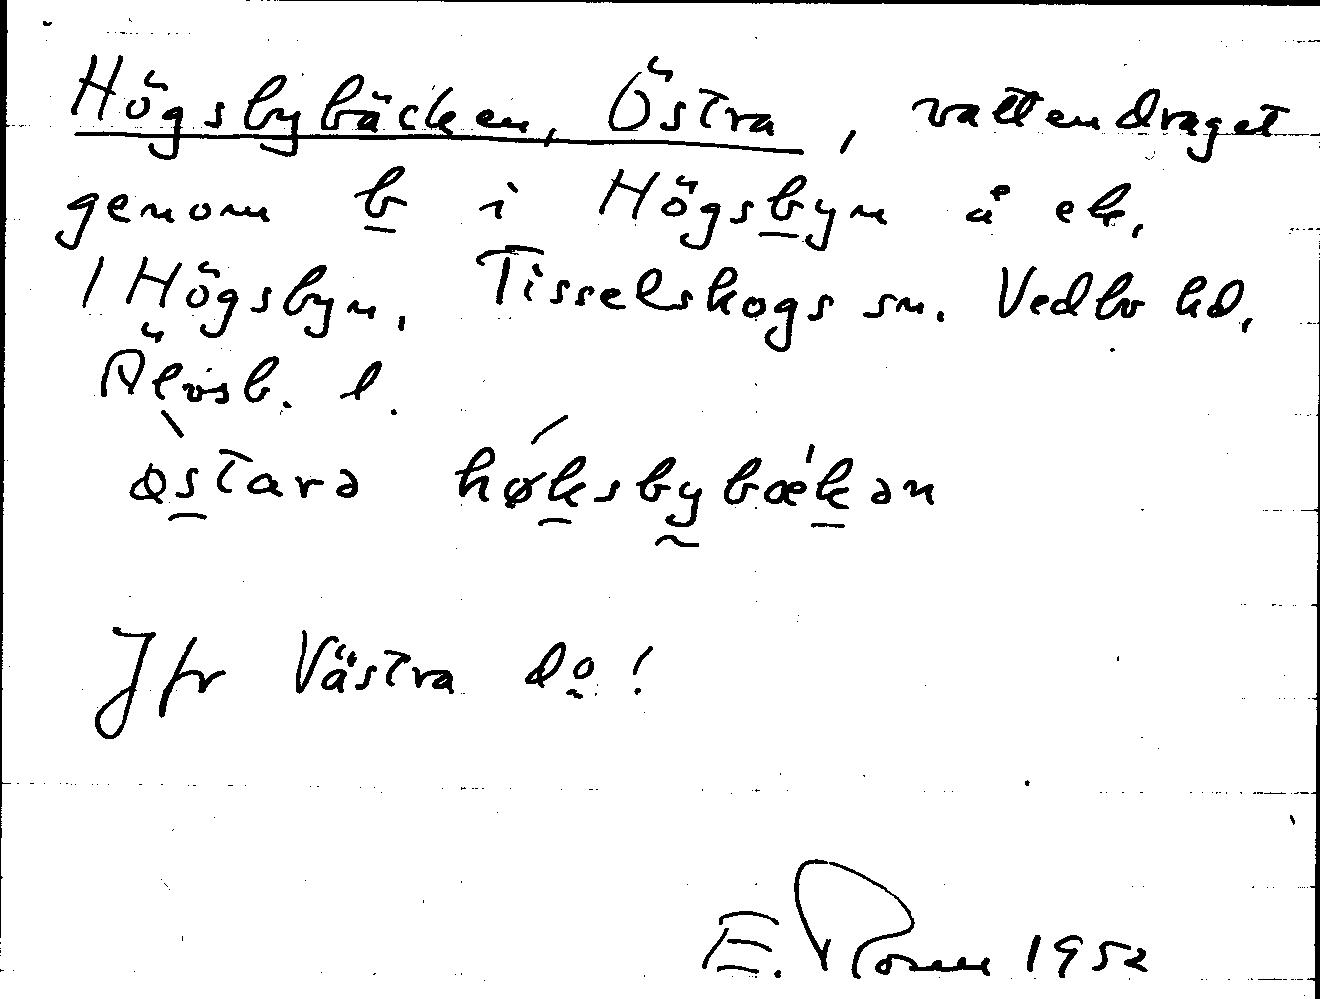 Högsbybäcken, Östra, vattendraget
genom b i Högsbyn å ek.
/ Högsbyn, Tisselskogs sn. Vedbo hd,
Älvsb. l.
østarə høksbybækən
Jfr Västra do!
E. 1952